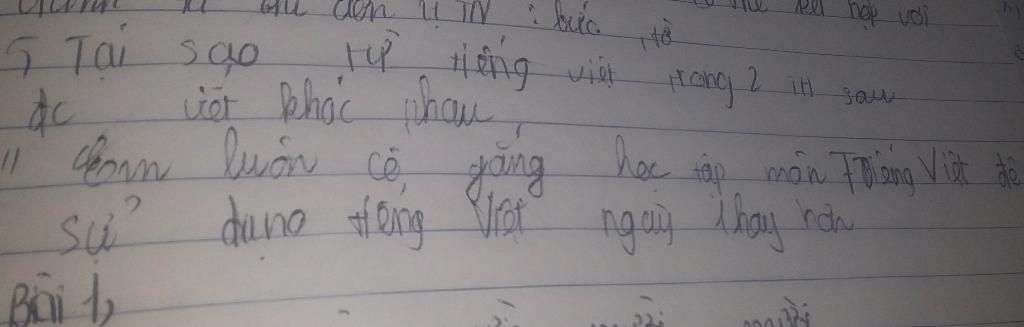 đơn vị TN : bức, tờ hợp với
5 Tại sao từ tiếng việt trong 2 TH sau
đc viết khác nhau
" Em luôn cố gắng học tập môn Tiếng Việt để
sử dụng tiếng Việt ngày 1 hay hơn
Bài 1,